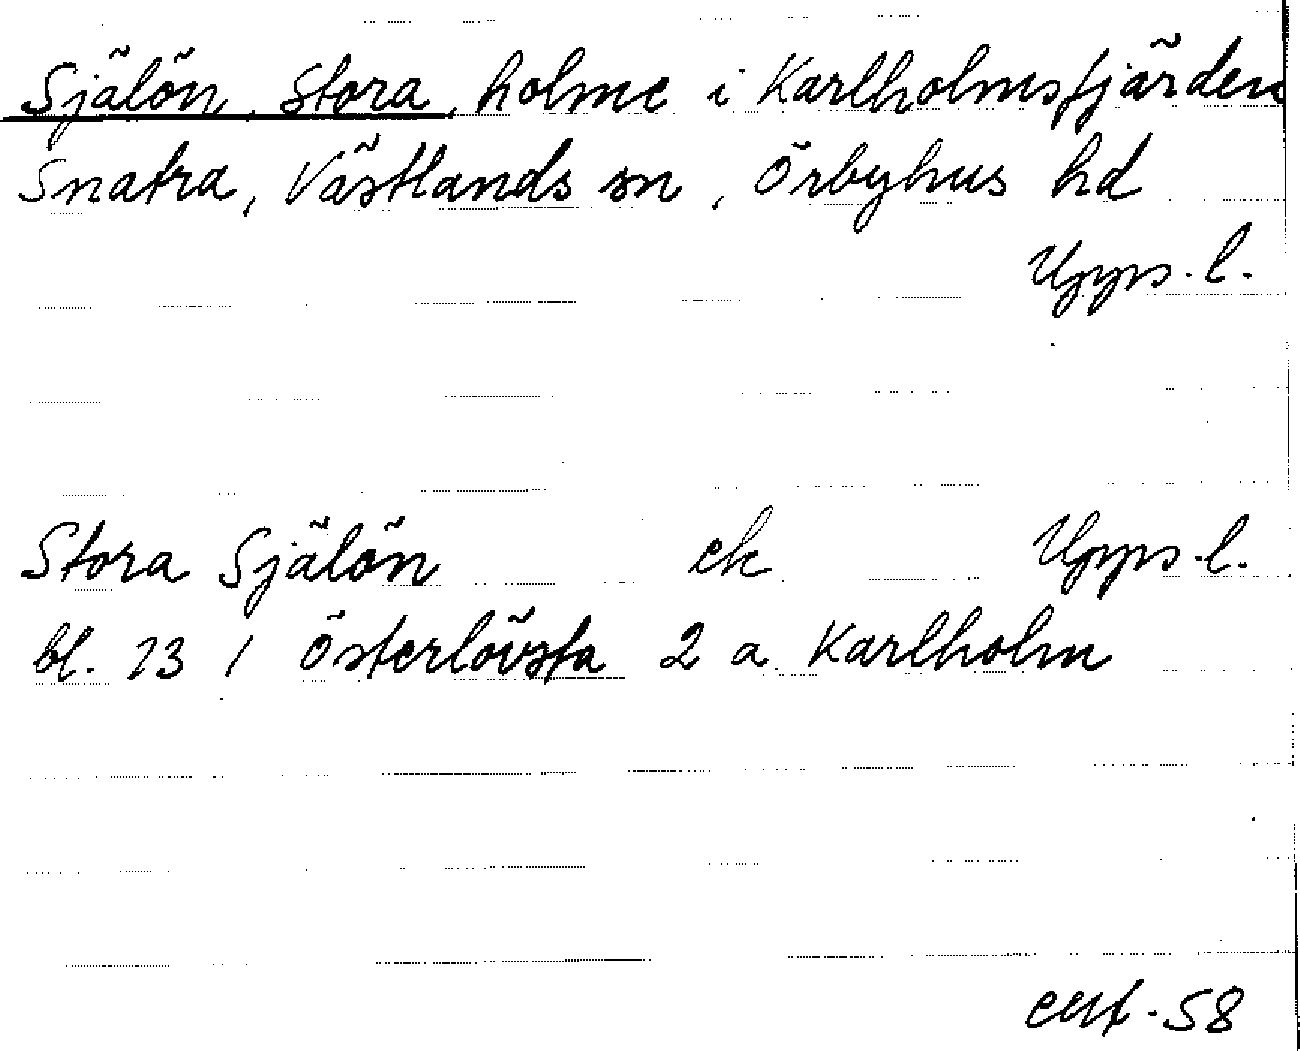 Själön, Stora, holme i Karlholmsfjärden
Snatra, Västlands sn, Örbyhus hd
Upps. l.
Stora Själön ek Upps. l.
bl. 13 / Österlövsta 2 a Karlholm
58